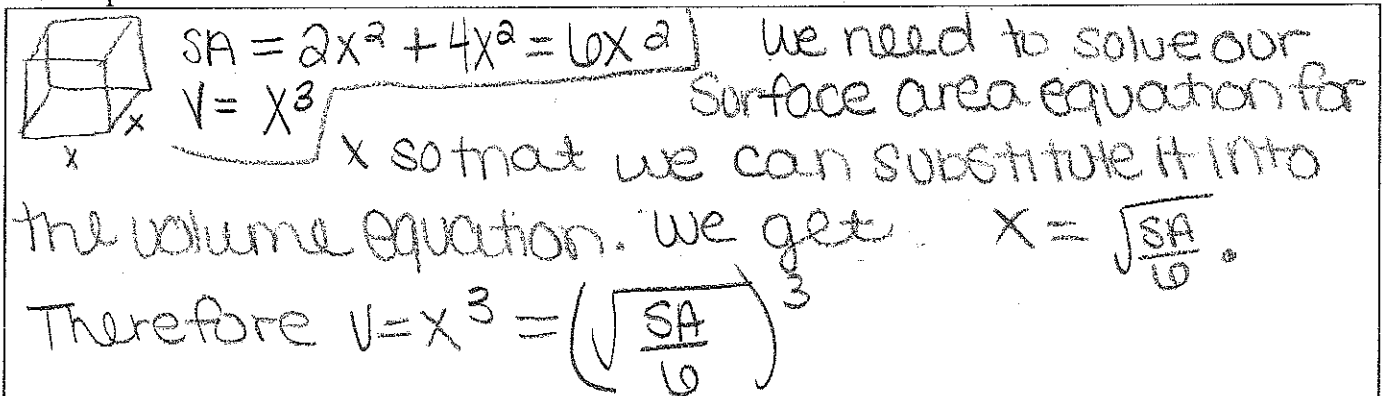 SA = 2x² + 4x² = 6x² We need to solve our
V = x³ surface area equation for
x x x so that we can substitute it into
the volume equation. We get x = √(SA/6).
Therefore V = x³ = (√(SA/6))³